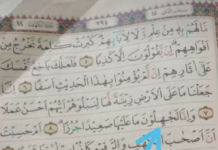 مَّا لَهُم بِهِۦ مِنْ عِلْمٍ وَلَا لِـَٔابَآئِهِمْ كَبُرَتْ كَلِمَةً تَخْرُجُ مِنْ
أَفْوَٰهِهِمْ إِن يَقُولُونَ إِلَّا كَذِبًا ۝ فَلَعَلَّكَ بَٰخِعٌ نَّفْسَكَ
عَلَىٰٓ ءَاثَٰرِهِمْ إِن لَّمْ يُؤْمِنُوا۟ بِهَٰذَا ٱلْحَدِيثِ أَسَفًا ۝ إِنَّا
جَعَلْنَا مَا عَلَى ٱلْأَرْضِ زِينَةً لَّهَا لِنَبْلُوَهُمْ أَيُّهُمْ أَحْسَنُ عَمَلًا
۝ وَإِنَّا لَجَٰعِلُونَ مَا عَلَيْهَا صَعِيدًا جُرُزًا ۝ أَمْ حَسِبْتَ
أَنَّ أَصْحَٰبَ